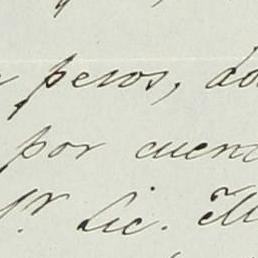 pesos, do
por cuen
Sr. Lic. M